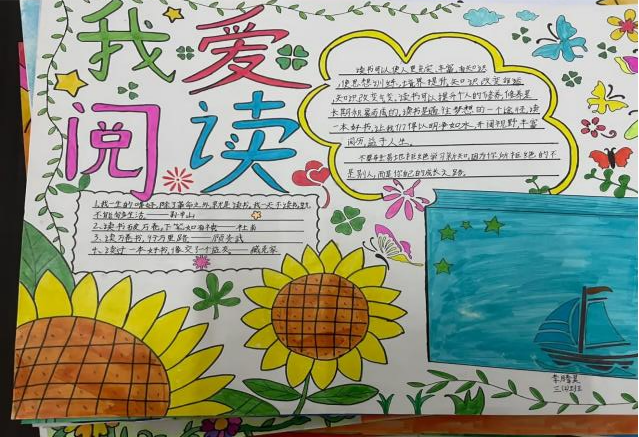 我爱
阅读
读书可以使人更充实、丰富,有知识
使思想训练,培养提升,知识改变命运
知识改变气质,读书可以提升个人的修养,修养是
长期积累而成的,读书是圆往梦想的一个途径,读
一本好书,让我们得以明净如水,开阔视野,丰富
阅历,益于人生。
不要轻易地拒绝学习新知,因为你所拒绝的不
是别人,而是你自己的成长之路。
1、我一生的嗜好,除了革命之外,就是读书,我一天不读书,就
不能够生活。——孙中山
2、读书破万卷,下笔如有神——杜甫
3、读万卷书,行万里路——顾炎武
4、读过一本好书,像交了个益友——臧克家
三(4)班